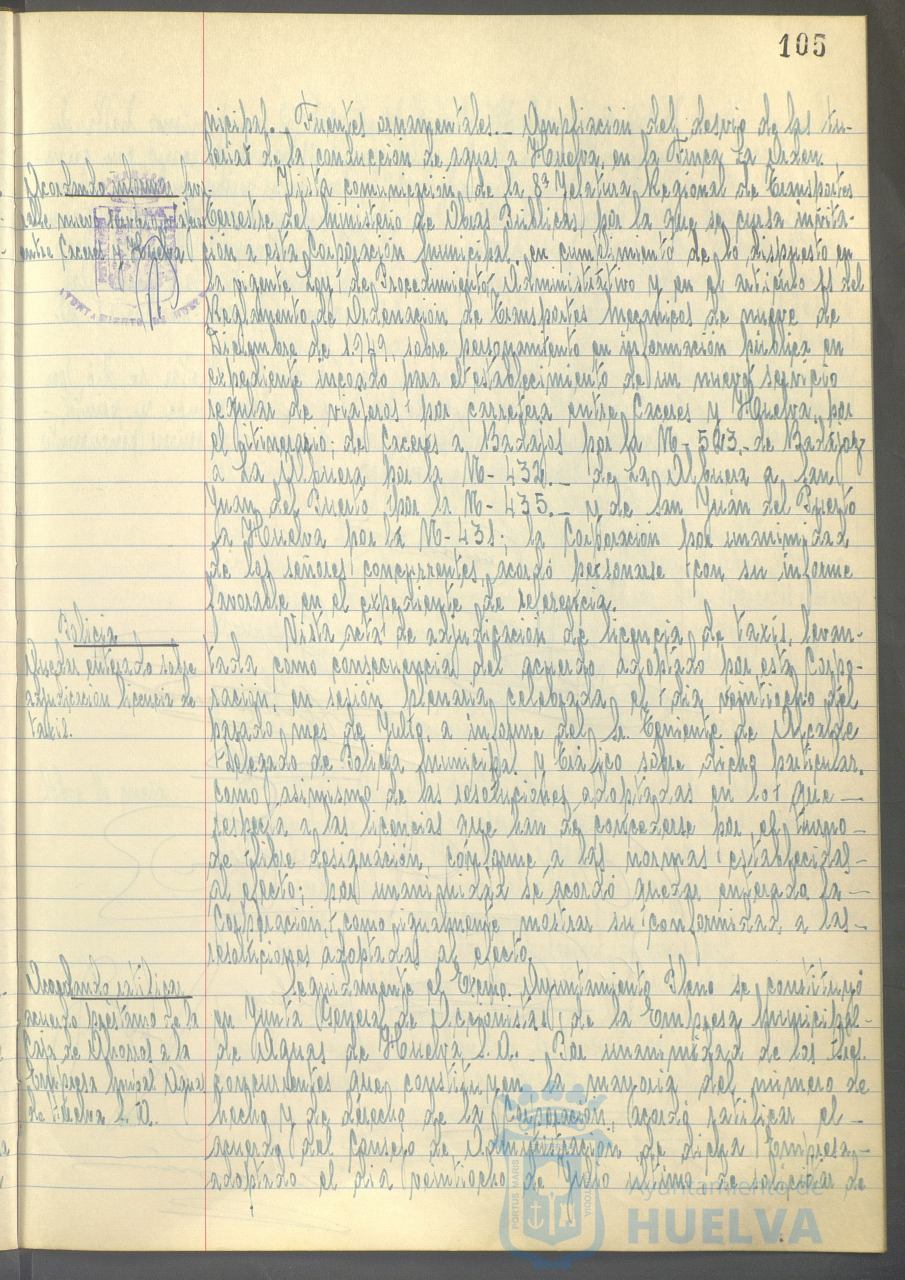 105
nicipal. Fuentes ornamentales.- Ampliación del desvio de las tu-
berias de la conducción de aguas a Huelva, en la Finca La Orden.
Acordando informar so-
bre nuevo servicio viajeros
entre Caceres y Huelva
Vista comunicación de la 8ª Jefatura Regional de Transportes
Terrestre del Ministerio de Obras Públicas, por la que se cursa invita-
ción a esta Corporación Municipal, en cumplimiento de lo dispuesto en
la vigente Ley de Procedimiento Administrativo y en el artículo 11 del
Reglamento de Ordenación de Transportes Mecánicos de nueve de
Diciembre de 1.949, sobre personamiento en información pública en
expediente incoado para el establecimiento de un nuevo servicio
regular de viajeros por carretera entre Caceres y Huelva, por
el itinerario; de Caceres a Badajos por la N-523.- de Badajoz
a La Albuera por la N-432.- de La Albuera a San
Juan del Puerto por la N-435.- y de San Juan del Puerto
a Huelva por la N-431; la Corporación por unanimidad
de los señores concurrentes, acordó personarse con su informe
favorable en el expediente de referencia.
Policia
Quedar enterado sobre
adjudicación licencia de
taxis.
Vista acta de adjudicación de licencia de taxis, levan-
tada como consecuencia del acuerdo adoptado por esta Corpo-
ración, en sesión plenaria celebrada el dia veintiocho del
pasado mes de Julio, a informe del Sr. Teniente de Alcalde
Delegado de Policia Municipal y Tráfico sobre dicho particular.
como asimismo de las resoluciones adoptadas en lo que -
respecta a las licencias que han de concederse por el turno -
de libre designación, conforme a las normas establecidas -
al efecto; por unanimidad se acordó quedar enterado la -
Corporación, como igualmente, mostrar su conformidad a las -
resoluciones adoptadas al efecto.
Acordando ratificar
acuerdo préstamo de la
Caja de Ahorros a la
Empresa Mnpal Aguas
de Huelva S.A.
Seguidamente el Excmo. Ayuntamiento Pleno se constituyó
en Junta General de Accionistas de la Empresa Municipal -
de Aguas de Huelva S.A.- Por unanimidad de los Sres.
concurrentes que constituyen la mayoria del número de
hecho y de derecho de la Corporación, acordó ratificar el
acuerdo del Consejo de Administración de dicha Empresa -
adoptado el dia veintiocho de Julio último, de solicitar de
PORTUS MARIS
CUSTODIA
Ayuntamiento de
HUELVA